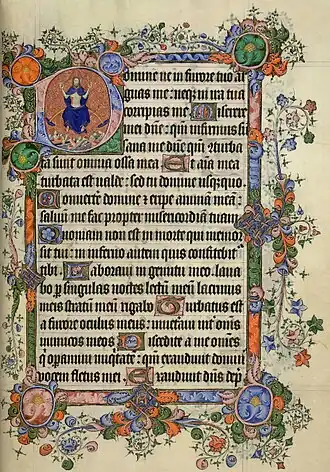 Domine ne in furore tuo ar
guas me: neqȝ in ira tua
corripias me Miserere
mei dñe: qm infirmus su
sana me dñe qm cturba
ta sunt omnia ossa mea Et aĩa mea
turbata est valde: sed tu domine usquequo
Convertere domine et eripe animã meã
salvũ me fac propter misericordiã tuam
Quoniam non est in morte qui memor
sit tui: in inferno autem quis confitebit
tibi Laboravi in gemitu meo: lava
bo p singulas noctes lectũ meũ: lacrimis
meis stratũ meũ rigabo Turbatus est
a furore oculus meus: inveteravi int oms
inimicos meos Discedite a me omes
q operamini iniqtatẽ: qm exaudivit domin
vocem fletus mei Exaudivit dñs dep